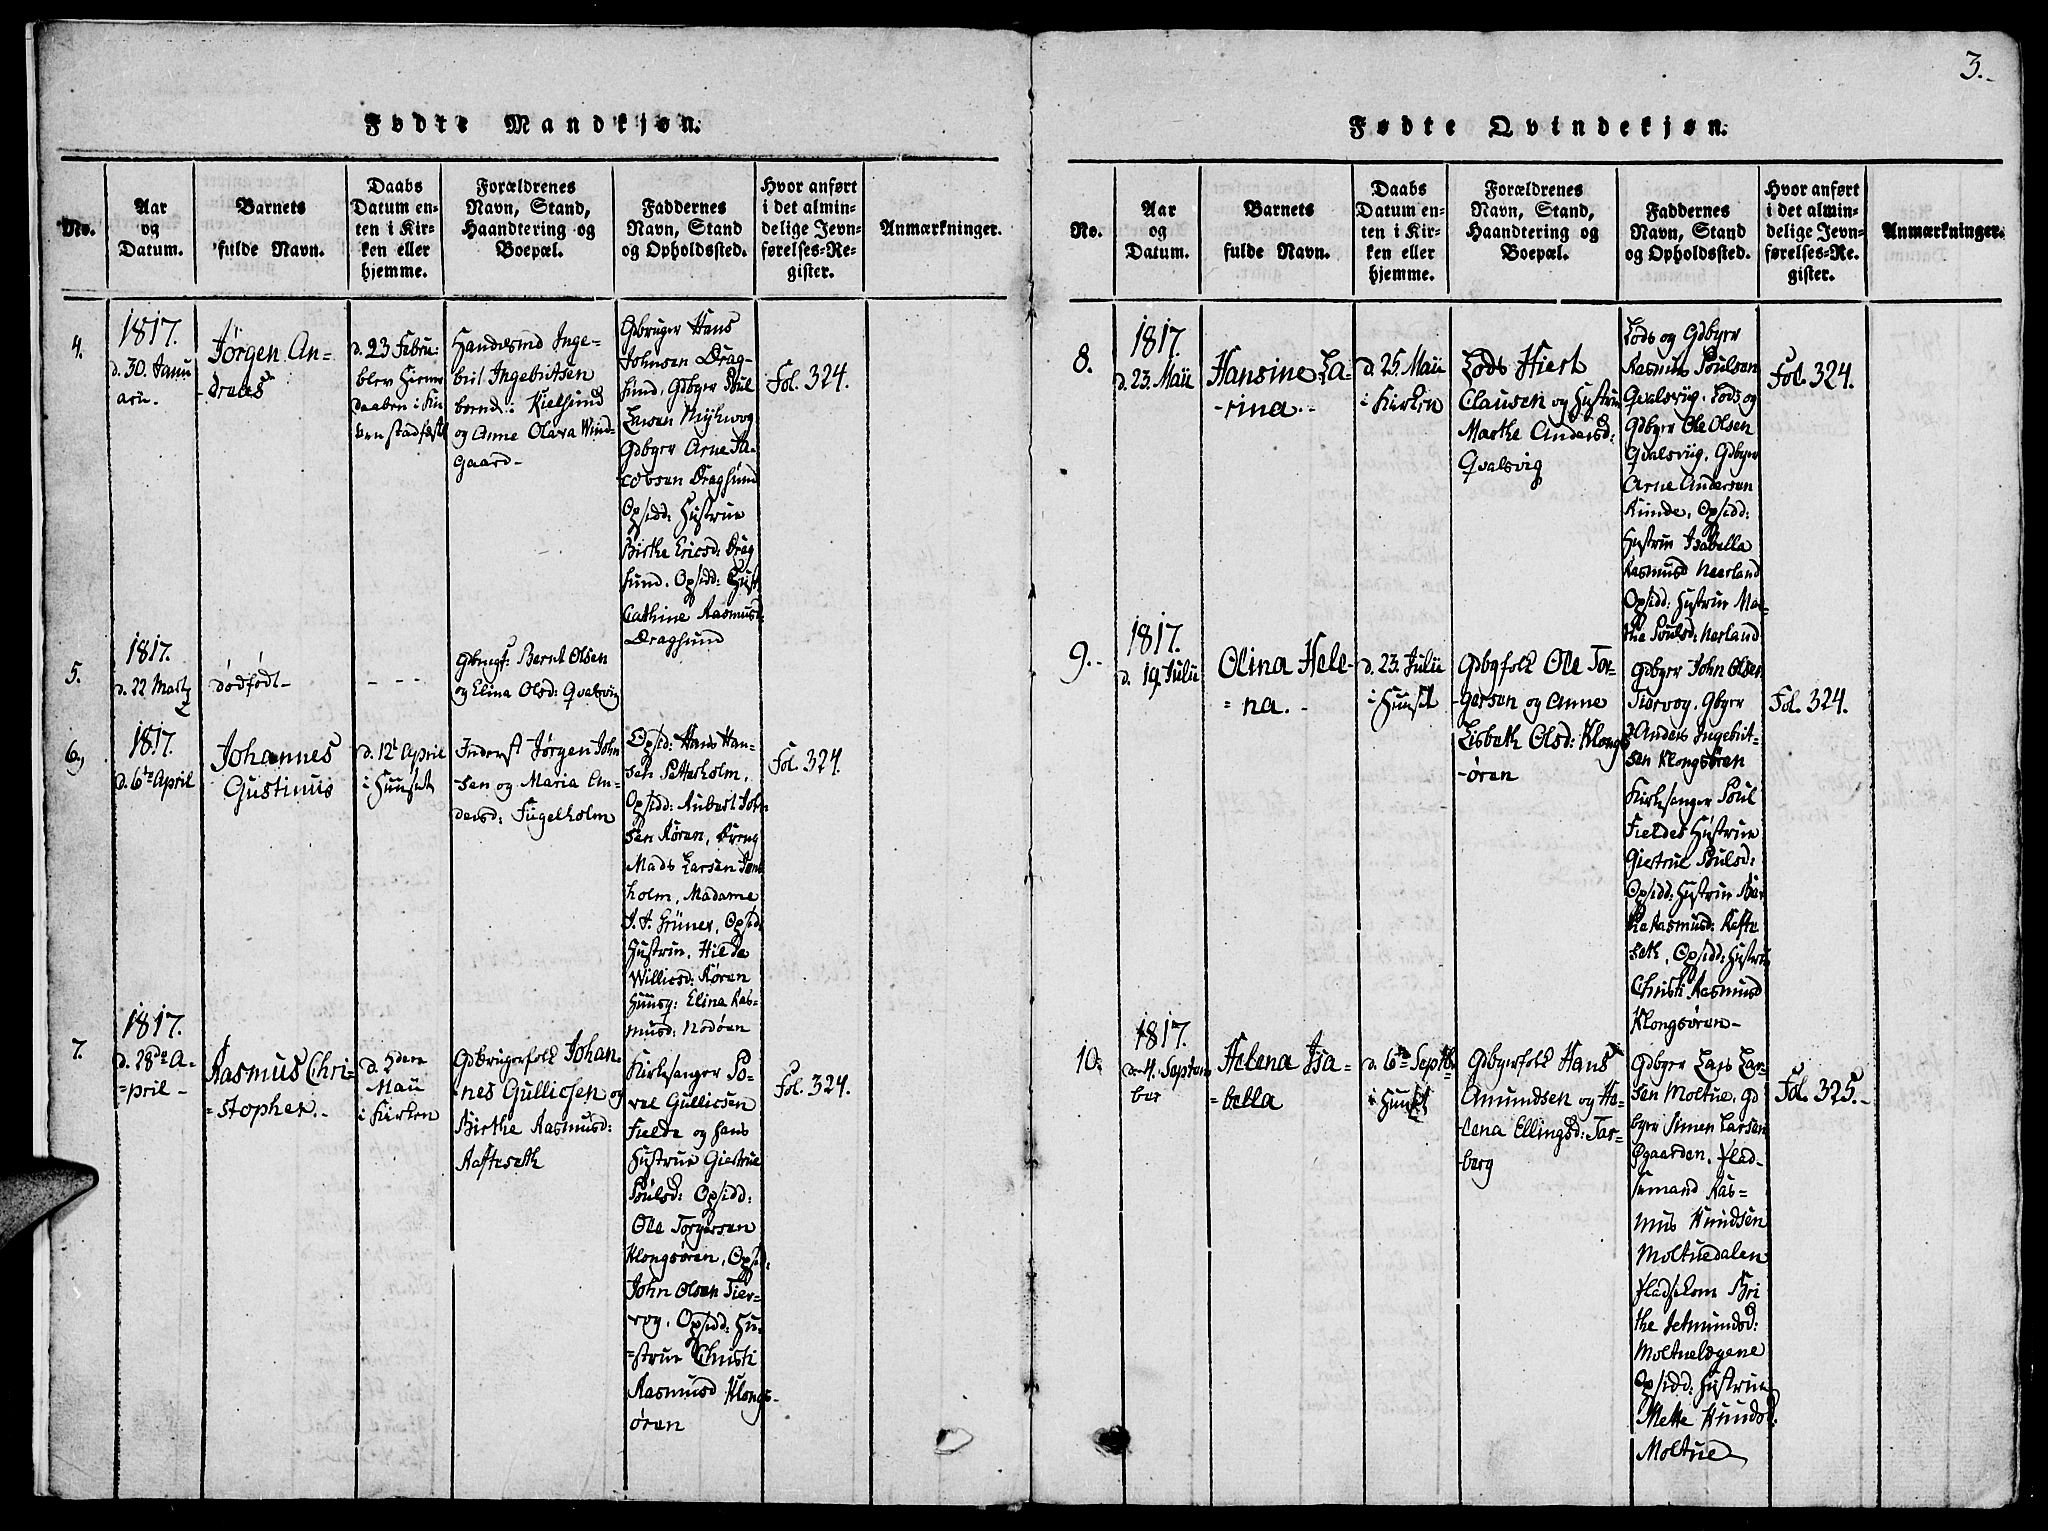 3.
Fødte Mandkjøn.
No.
Aar
og
Datum.
Barnets
fulde Navn.
Daabs
Datum en-
ten i Kir-
ken eller
hjemme.
Forældrenes
Navn, Stand,
Haandtering og
Boepæl.
Faddernes
Navn, Stand
og Opholdssted.
Hvor anført
i det almin-
delige Jevn-
førelses-Re-
gister.
Anmærkninger.
4.
1817.
d. 30. Janu
arii.
Jørgen An-
dreas
d. 23 Febru:
blev Hiemme
daaben i Kir
ken stadfæst
Handelsmd Inge-
bril Ingebritsen
bernd: Kielsund
og Anne Olava Wind-
Gaard-
Gdbruger Hans
Johnsen Drag-
sund, Gdbyer Poul
Larsen Myhrvog
Gdbyer Arne Ja-
cobsen Dragsund
Opsidd: Hustrue
Birthe Ericsd: Drag
sund. Opsidd: Hust.
Cathine Rasmusd:
Dragsund
Fol. 324.
5.
1817.
d. 22 Marty
dødfødt-
- - -
Gbrugf: Bernt Olsen
og Elina Olsd: Qvalsvig
6.
1817.
d. 6te April
Johannes
Gustinus
d. 12te April
i Huuset
Inderst Jørgen John
sen og Maria An-
dersd: Fugelholm
Opsid: Hans Han-
sen Petterholm,
Opsidd: Aubert John
sen Røren, Dreng
Mads Larsen
holm, Madame
Grüner, Opsid:
Hustrue, Hilde
Williesd: Røren
Huusq: Elina Ras-
musd: Nodøen
Fol. 324.
7.
1817.
d. 28de A-
=pril-
Rasmus Chri-
=stopher.-
d. 5den
Maii
i Kirken
Gdbrugerfolk Johan-
nes Gullicsen og
Birthe Rasmusd:
Rafteseth
Kirkesanger Po-
vel Gullicsen
Fielde og hans
Hustrue Giertrue
Poulsd: Opsidd:
Ole Torgersen
Klongsøren, Opsid:
John Olsen Tier-
vog, Opsidd: Hu-
=strue Christi
Rasmusd Klongs-
øren
Fol. 324.
Fødte Qvindekjøn.
No.
Aar
og
Datum.
Barnets
fulde Navn.
Daabs
Datum en-
ten i Kir-
ken eller
hjemme.
Forældrenes
Navn, Stand,
Haandtering og
Boepæl.
Faddernes
Navn, Stand
og Opholdssted.
Hvor anført
i det almin-
delige Jevn-
førelses-Re-
gister.
Anmærkninger.
8.
1817.
d. 23. Maii
Hansine La-
-rina.-
d. 25. Maii
i Kirken
Lods Hiert
Clausen og Hustrue
Marthe Andersd:
Qvalsvig
Lods og Gdbyer
Rasmus Poulsen
Qvalsvig, Lods og
Gdbyer Ole Olsen
Qvalsviig, Gdbyer
Arne Andersen
Runde, Opsidd:
Hustrue Isabella
Rasmusd Neerland
Opsidd: Hustrue Mar-
the Poulsd: Nerland
Fol. 324.
9.-
1817.
d. 19. Julii
Olina Hele-
=na.-
d. 23. Julii
i Huuset
Gdbyfolk Ole Tor-
-gersen og Anne
Lisbeth Olsd: Klongs
-øren
Gdbyer John Olsen
Tiervog, Gbyer
Anders Ingebrit-
sen Klongsøren
Kirkesanger Poul
Fieldes Hustrue
Giertrue Poulsd:
Opsidd: Hustrue Bir-
the Rasmusd: Rafte
seth, Opsidd: Hustrue
Christi Rasmusd
Klongsøren-
Fol. 324.
10.
1817.
d. 4. Septem
ber
Helena Isa-
=bella
d. 6te Septb
i Huuset
Gdbyerfolk Hans
Amundsen og He-
lena Ellingsd: Tar-
berg
Gdbyer Lars Lar-
sen Moltue, Gd
byer Simen Larsen
Øgaarden, Plad-
semand Ras-
mus Knudsen
Moltuedalen
Pladsekone Bri
the Jetmundsd:
Moltuelægene
Opsidd: Hustrue
Mette Knudsd:
Moltue
Fol. 325.-